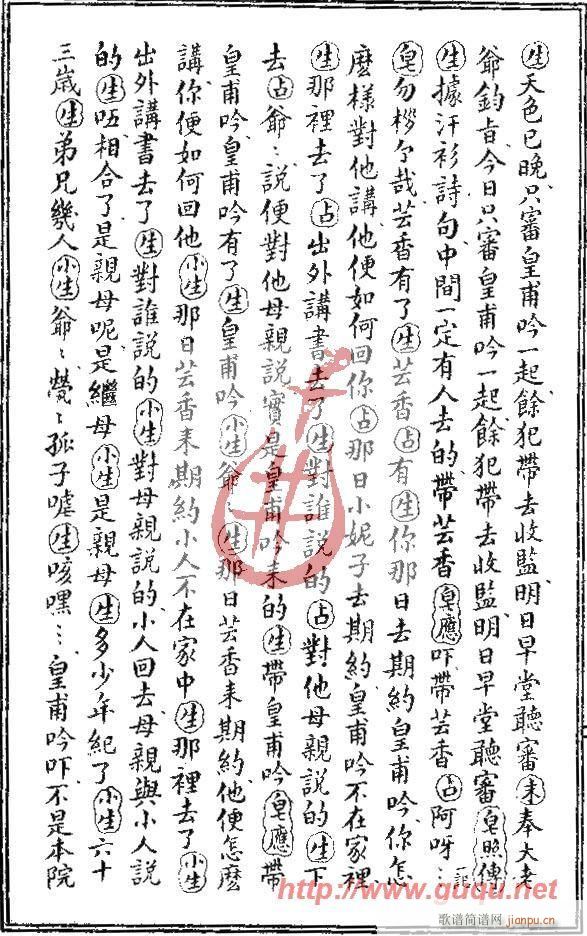 生天色已晚只審皇甫吟一起餘犯帶去收監明日早堂聽審末奉大老
爺鈞旨今日只審皇甫吟一起餘犯帶去收監明日早堂聽審皂照傳
生據汗衫詩句中間一定有人去的帶芸香皂應吓帶芸香占阿呀〻
皂勿椤个哉芸香有了生芸香占有生你那日去期約皇甫吟你怎
麽樣對他講他便如何回你占那日小妮子去期約皇甫吟不在家裡
生那裡去了占出外講書去了生對誰說的占對他母親說的生下
去占爺〻說便對他母親說寳是皇甫吟来的生帶皇甫吟皂應帶
皇甫吟皇甫吟有了生皇甫吟小生爺〻生那日芸香来期約他便怎麽
講你便如何回他小生那日芸香来期約小人不在家中生那裡去了小生
出外講書去了生對誰說的小生對母親說的小人回去母親與小人說
的生吥相合了是親母呢是繼母小生是親母生多少年紀了小生六十
三歲生弟兄幾人小生爺〻煢〻孤子嘘生咳嘿〻皇甫吟吓不是本院
http://www.guqu.net
歌谱简谱网
jianpu.cn